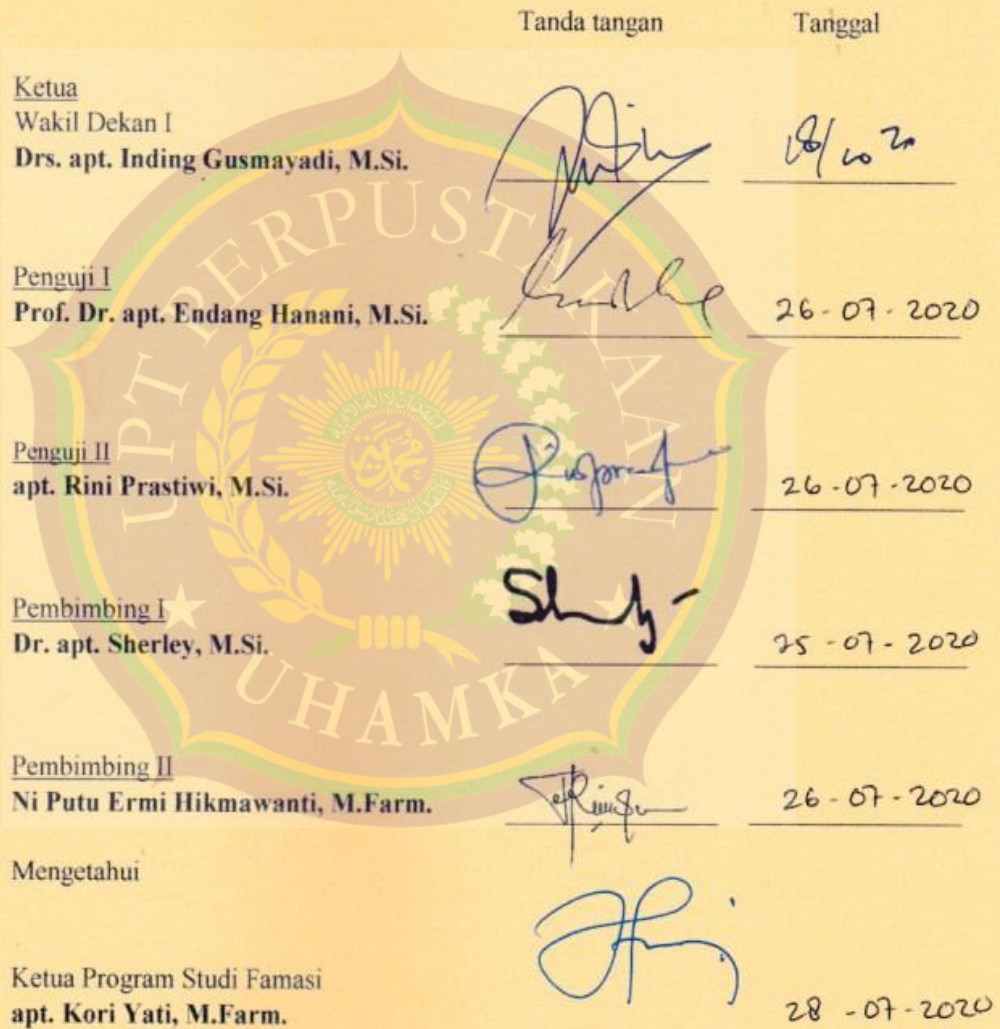 Tanda tangan Tanggal
Ketua
Wakil Dekan I
Drs. apt. Inding Gusmayadi, M.Si.
Penguji I
Prof. Dr. apt. Endang Hanani, M.Si. 26-07-2020
Penguji II
apt. Rini Prastiwi, M.Si. 26-07-2020
Pembimbing I
Dr. apt. Sherley, M.Si. 25-07-2020
Pembimbing II
Ni Putu Ermi Hikmawanti, M.Farm. 26-07-2020
Mengetahui
Ketua Program Studi Famasi
apt. Kori Yati, M.Farm. 28-07-2020
UPT PERPUSTAKAAN
UHAMKA